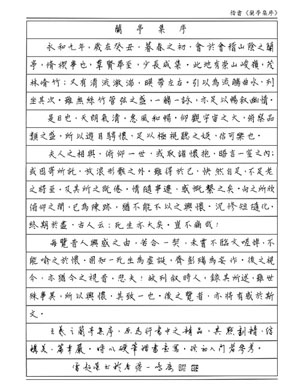 楷書《蘭亭集序》
蘭亭集序
永和九年，歲在癸丑，暮春之初，會於會稽山陰之蘭
亭，脩禊事也。羣賢畢至，少長咸集。此地有崇山峻嶺，茂
林脩竹；又有清流激湍，暎帶左右。引以為流觴曲水，列
坐其次。雖無絲竹管弦之盛，一觴一詠，亦足以暢叙幽情。
是日也，天朗氣清，惠風和暢，仰觀宇宙之大，俯察品
類之盛，所以遊目騁懷，足以極視聽之娛，信可樂也。
夫人之相與，俯仰一世，或取諸懷抱，晤言一室之內；
或因寄所託，放浪形骸之外。
老之將至。及其所之既倦，情隨事遷，感慨繫之矣。向之所欣
俯仰之間，已為陳跡，猶不能不以之興懷。況修短隨化，
終期於盡。古人云：死生亦大矣。豈不痛哉！
每覽昔人興感之由，若合一契，未嘗不臨文嗟悼，不
能喻之於懷。固知一死生為虛誕，齊彭殤為妄作。後之視
今，亦猶今之視昔。悲夫！故列叙時人，錄其所述，雖世
殊事異，所以興懷，其致一也。後之覽者，亦將有感於斯
文。